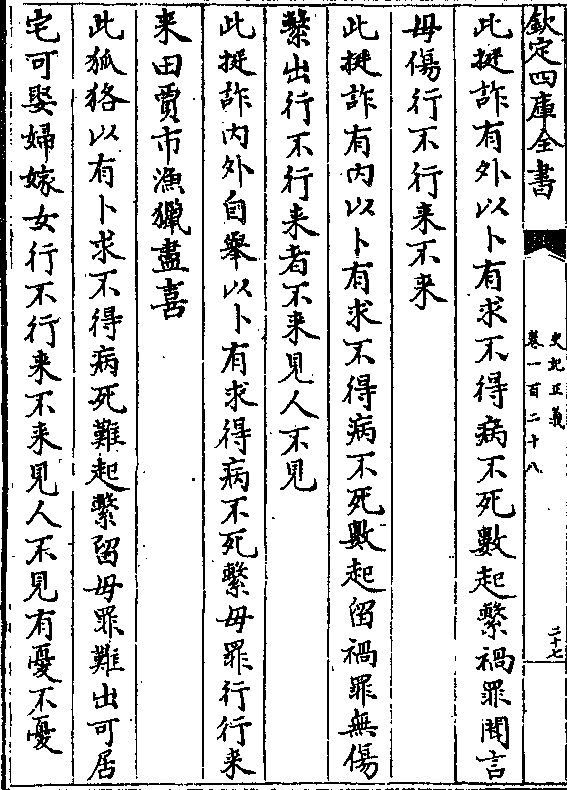 欽定四庫全書
史記正義
卷一百二十八
二十七
此挺詐有外以卜有求不得病不死數起繫禍罪聞言
毋傷行不行来不来
此挺詐有内以卜有求不得病不死數起留禍罪無傷
繫出行不行来者不来見人不見
此挺詐内外自舉以卜有求得病不死繫毋罪行行来
来田賈市漁獵盡喜
此狐狢以有卜求不得病死難起繫留毋罪難出可居
宅可娶婦嫁女行不行来不来見人不見有憂不憂